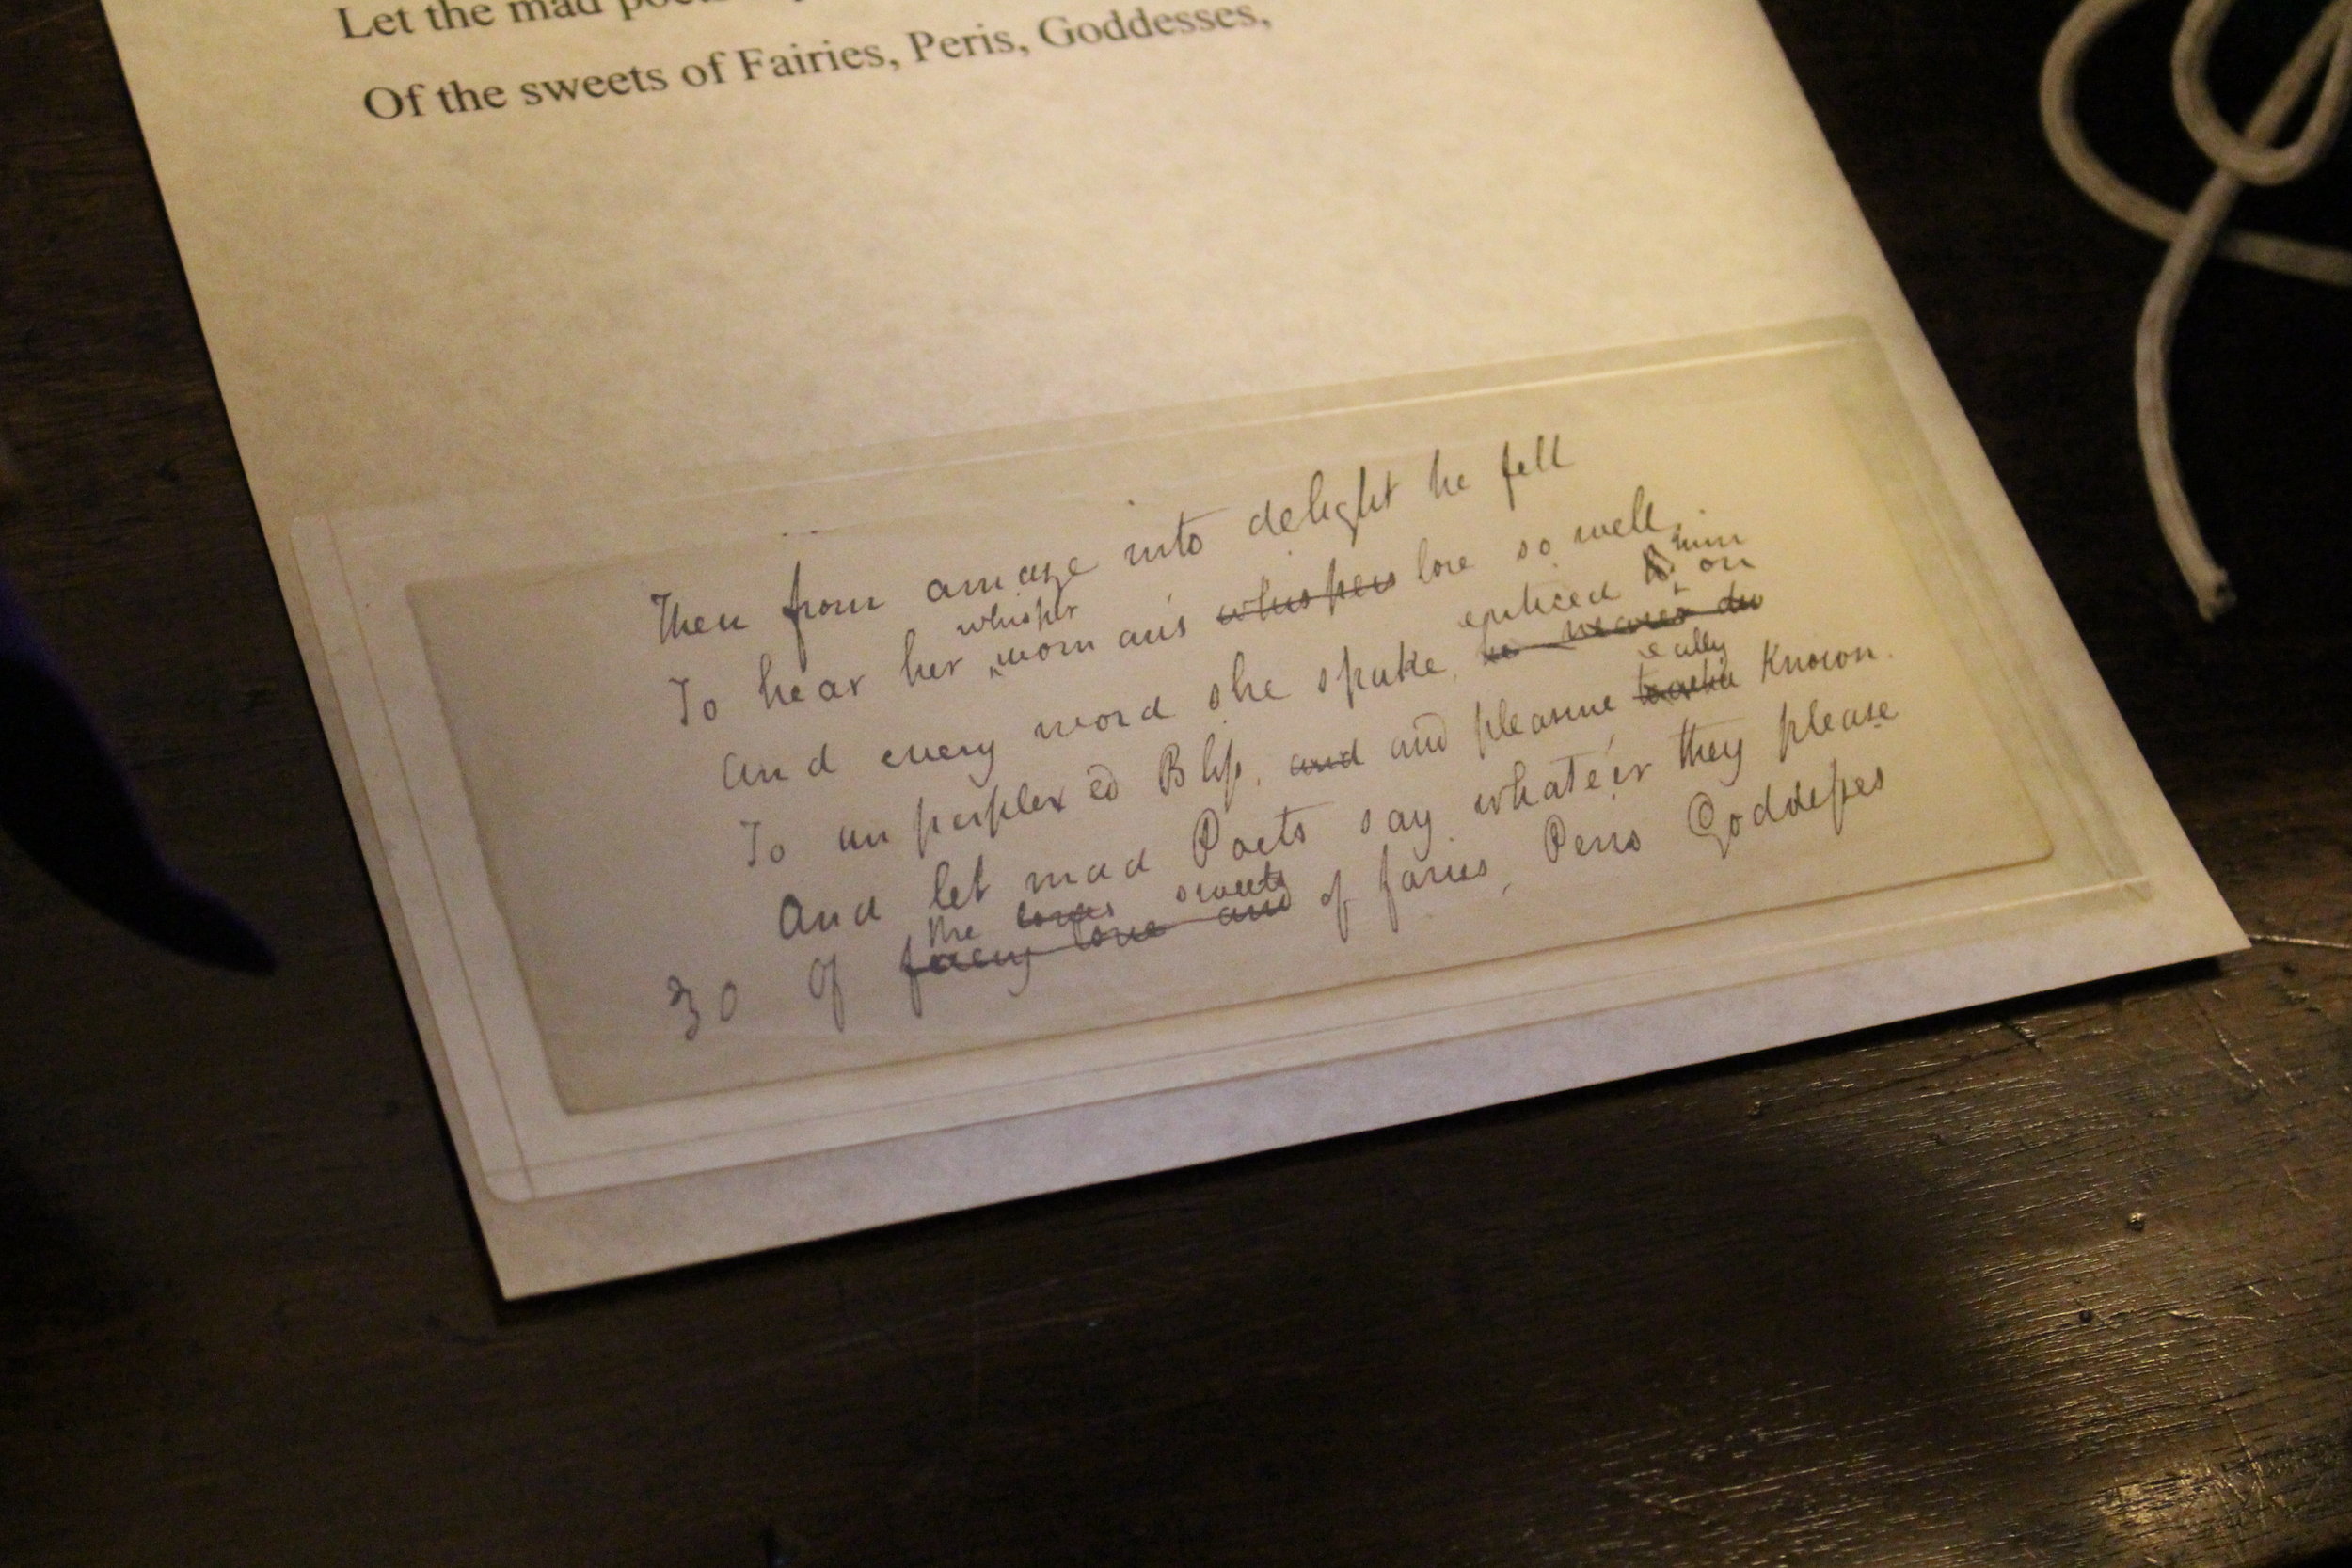 Let the mad
Of the sweets of Fairies, Peris, Goddesses,
Then from amaze into delight he fell
whisper
To hear her woman's whispers lore so well
enticed him on
And every word she spake
eally
To unperplex'd Bliss, and and pleasure known.
And let mad Poets say whate'er they please
the loves sweets
30 Of faery love and of faries, Peris Goddesses